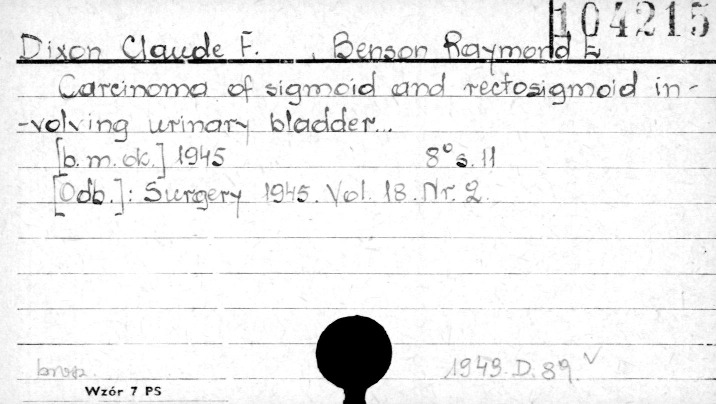 104215
Dixon Claude F. , Benson Raymond E
Carcinoma of sigmoid and rectosigmoid in-
-volving urinary bladder...
[b.m.ok.] 1945 8° s. 11
[Odb.]: Surgery 1945. Vol. 18. Nr. 2.
1949. D. 89. ✓
Wzór 7 PS